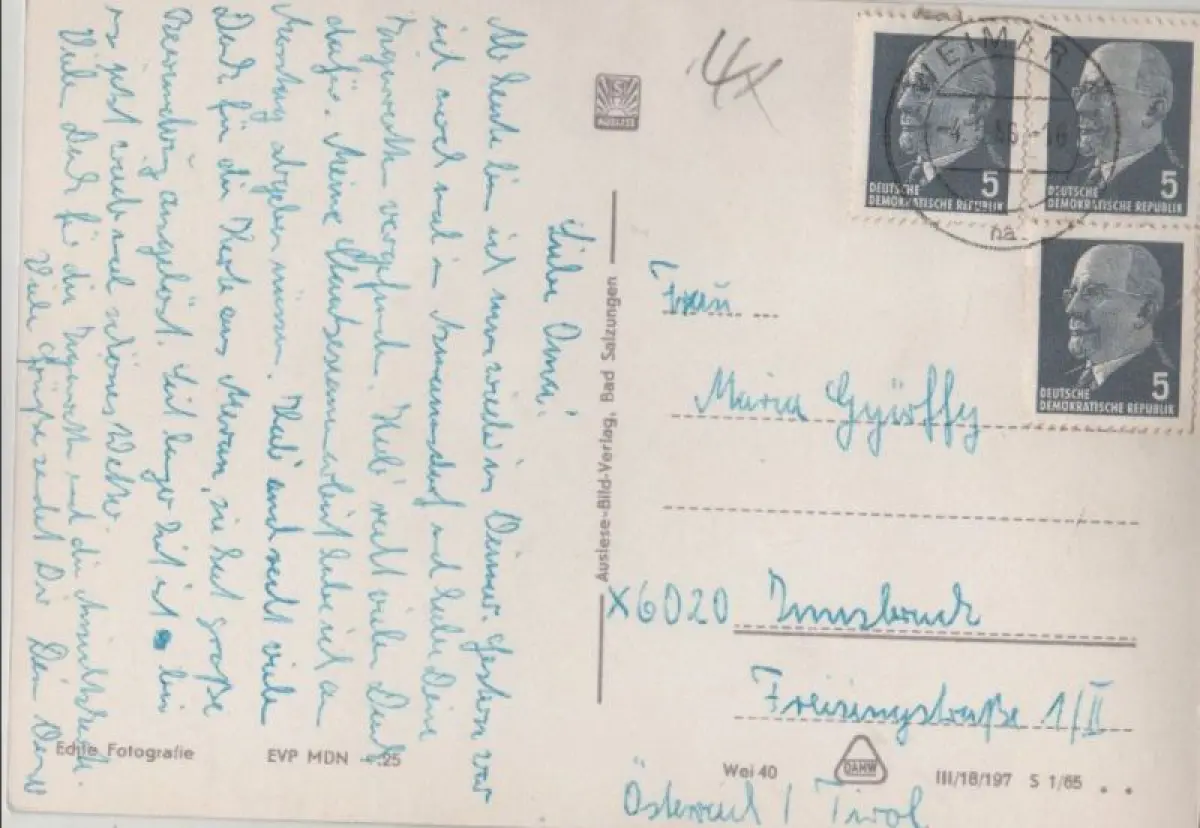 Liebe Oma!
heute bin ich nun wieder in Weimar. Gestern war
ich noch mal in und habe Deine
vorgefunden. Hab' recht vielen Dank
dafür. Meine Staatsexamensarbeit habe ich am
Montag abgeben müssen. Hab' auch recht viele
Dank für die Karte aus Meran, sie hat große
Bewunderung ausgelöst. Seit langer Zeit ist bei
uns jetzt auch mal schönes Wetter.
Viele Dank für die und die Ansichtskarte.
Viele Grüße sendet Dir Dein
Edite Fotografie
EVP MDN -.25
AUSLESE
Auslese-Bild-Verlag, Bad Salzungen
WEIMAR
na
5
DEUTSCHE
DEMOKRATISCHE REPUBLIK
5
DEUTSCHE
DEMOKRATISCHE REPUBLIK
5
DEUTSCHE
DEMOKRATISCHE REPUBLIK
Frau
Maria Györffy
X6020 Innsbruck
Freisingstraße 1/II
Wei 40
DAMW
III/18/197 S 1/65
Österreich / Tirol